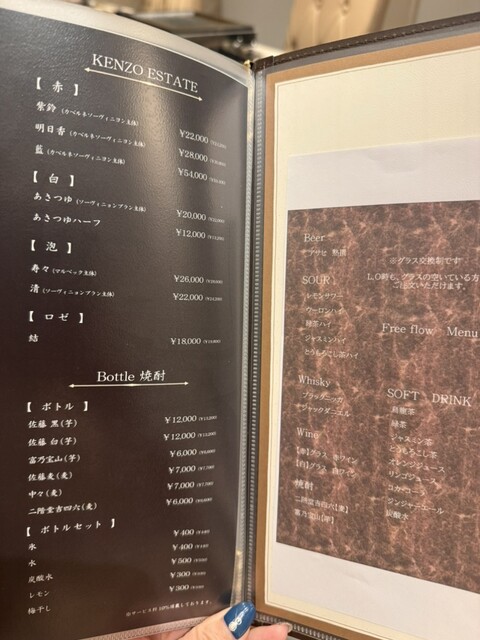 KENZO ESTATE
【 赤 】
紫鈴 (カベルネソーヴィニヨン主体) ¥22,000
明日香 (カベルネソーヴィニヨン主体) ¥28,000
藍 (カベルネソーヴィニヨン主体) ¥54,000
【 白 】
あさつゆ (ソーヴィニョンブラン主体) ¥20,000
あさつゆハーフ ¥12,000
【 泡 】
寿々 (マルベック主体) ¥26,000
清 (ソーヴィニョンブラン主体) ¥22,000
【 ロゼ 】
結 ¥18,000
Bottle 焼酎
【 ボトル 】
佐藤 黒(芋) ¥12,000 (¥13,200)
佐藤 白(芋) ¥12,000 (¥13,200)
富乃宝山(芋) ¥6,000 (¥6,600)
佐藤麦(麦) ¥7,000 (¥7,700)
中々(麦) ¥7,000 (¥7,700)
二階堂吉四六(麦) ¥6,000 (¥6,600)
【 ボトルセット 】
氷 ¥400 (¥440)
水 ¥400 (¥440)
炭酸水 ¥500 (¥550)
レモン ¥300 (¥330)
梅干し ¥300 (¥330)
※サービス料 10%頂戴しております。
※グラス交換制です
L.O時も、グラスの空いている方
ご注文いただけます。
Free flow Menu
Beer
SOUR
レモンサワー
ウーロンハイ
緑茶ハイ
ジャスミンハイ
とうもろこし茶ハイ
Whisky
ブラックニッカ
ジャックダニエル
Wine
【赤】グラス 赤ワイン
【白】グラス 白ワイン
焼酎
二階堂吉四六【麦】
富乃宝山【芋】
SOFT DRINK
烏龍茶
緑茶
ジャスミン茶
とうもろこし茶
オレンジジュース
リンゴジュース
コカ・コーラ
ジンジャーエール
炭酸水